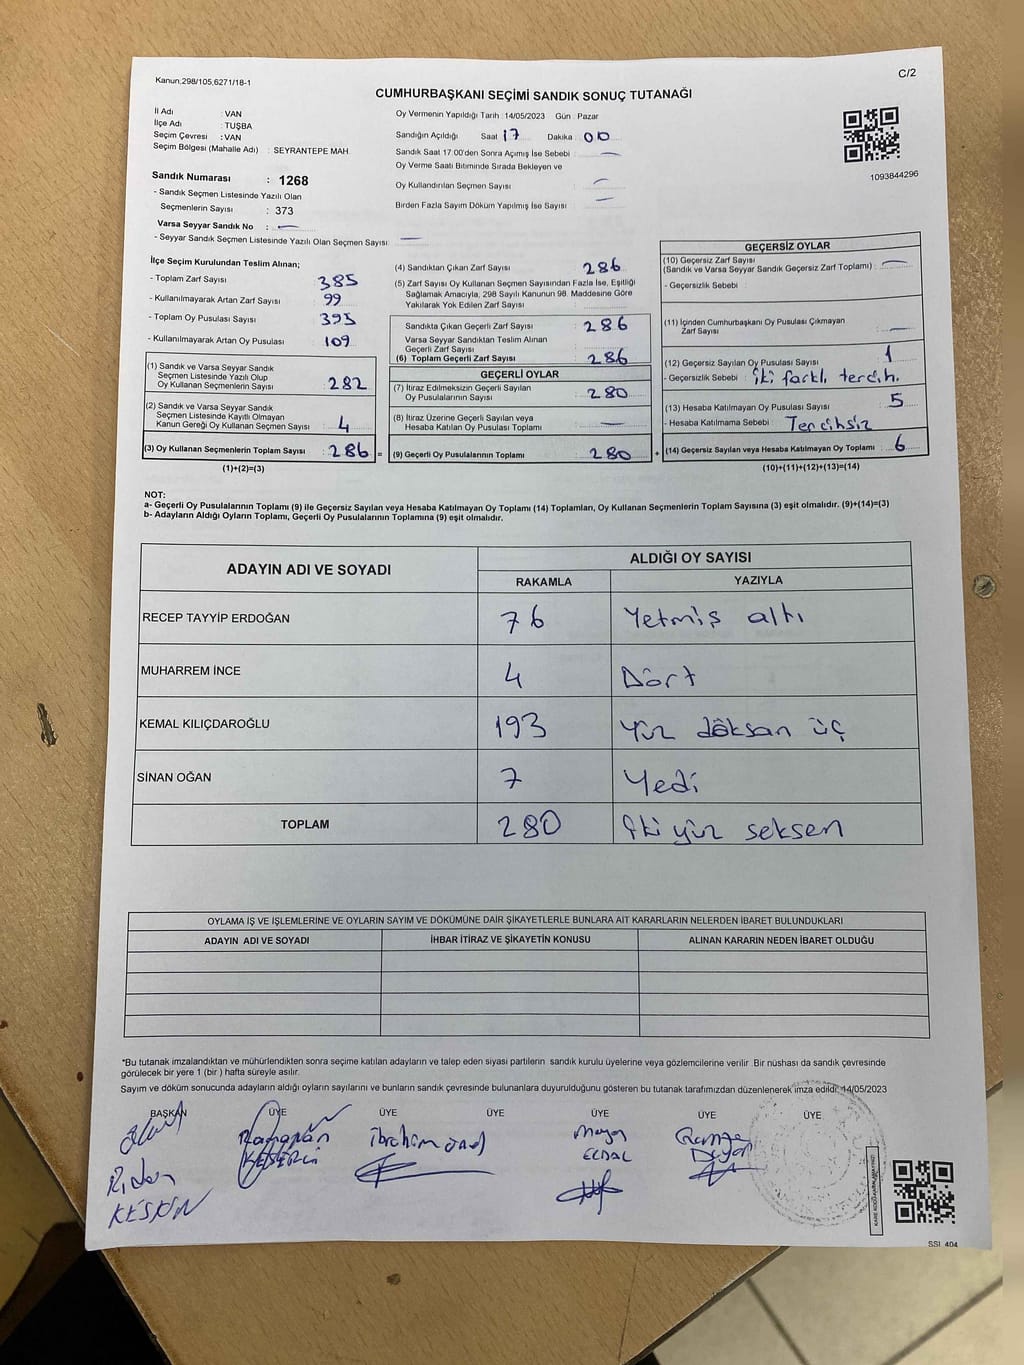 Kanun;298/105;6271/18-1
C/2
CUMHURBAŞKANI SEÇİMİ SANDIK SONUÇ TUTANAĞI
İl Adı : VAN
İlçe Adı : TUŞBA
Seçim Çevresi : VAN
Seçim Bölgesi (Mahalle Adı) : SEYRANTEPE MAH.
Oy Vermenin Yapıldığı Tarih : 14/05/2023 Gün : Pazar
Sandığın Açıldığı Saat 17 Dakika 00
Sandık Saat 17:00'den Sonra Açımış İse Sebebi : —
Oy Verme Saati Bitiminde Sırada Bekleyen ve
Oy Kullandırılan Seçmen Sayısı : —
Birden Fazla Sayım Döküm Yapılmış İse Sayısı : —
1093844296
Sandık Numarası : 1268
- Sandık Seçmen Listesinde Yazılı Olan
Seçmenlerin Sayısı : 373
Varsa Seyyar Sandık No : —
- Seyyar Sandık Seçmen Listesinde Yazılı Olan Seçmen Sayısı: —
İlçe Seçim Kurulundan Teslim Alınan;
- Toplam Zarf Sayısı : 385
- Kullanılmayarak Artan Zarf Sayısı : 99
- Toplam Oy Pusulası Sayısı : 395
- Kullanılmayarak Artan Oy Pusulası : 109
(1) Sandık ve Varsa Seyyar Sandık
Seçmen Listesinde Yazılı Olup
Oy Kullanan Seçmenlerin Sayısı : 282
(2) Sandık ve Varsa Seyyar Sandık
Seçmen Listesinde Kayıtlı Olmayan
Kanun Gereği Oy Kullanan Seçmen Sayısı : 4
(3) Oy Kullanan Seçmenlerin Toplam Sayısı : 286 =
(1)+(2)=(3)
(4) Sandıktan Çıkan Zarf Sayısı : 286
(5) Zarf Sayısı Oy Kullanan Seçmen Sayısından Fazla İse, Eşitliği
Sağlamak Amacıyla; 298 Sayılı Kanunun 98. Maddesine Göre
Yakılarak Yok Edilen Zarf Sayısı :
Sandıkta Çıkan Geçerli Zarf Sayısı : 286
Varsa Seyyar Sandıktan Teslim Alınan
Geçerli Zarf Sayısı :
(6) Toplam Geçerli Zarf Sayısı : 286
GEÇERLİ OYLAR
(7) İtiraz Edilmeksizin Geçerli Sayılan
Oy Pusulalarının Sayısı : 280
(8) İtiraz Üzerine Geçerli Sayılan veya
Hesaba Katılan Oy Pusulası Toplamı : —
(9) Geçerli Oy Pusulalarının Toplamı : 280 +
GEÇERSİZ OYLAR
(10) Geçersiz Zarf Sayısı
(Sandık ve Varsa Seyyar Sandık Geçersiz Zarf Toplamı) : —
- Geçersizlik Sebebi :
(11) İçinden Cumhurbaşkanı Oy Pusulası Çıkmayan
Zarf Sayısı : —
(12) Geçersiz Sayılan Oy Pusulası Sayısı : 1
- Geçersizlik Sebebi : iki farklı tercih.
(13) Hesaba Katılmayan Oy Pusulası Sayısı : 5
- Hesaba Katılmama Sebebi : Tercihsiz
(14) Geçersiz Sayılan veya Hesaba Katılmayan Oy Toplamı : 6
(10)+(11)+(12)+(13)=(14)
NOT:
a- Geçerli Oy Pusulalarının Toplamı (9) ile Geçersiz Sayılan veya Hesaba Katılmayan Oy Toplamı (14) Toplamları, Oy Kullanan Seçmenlerin Toplam Sayısına (3) eşit olmalıdır. (9)+(14)=(3)
b- Adayların Aldığı Oyların Toplamı, Geçerli Oy Pusulalarının Toplamına (9) eşit olmalıdır.
ADAYIN ADI VE SOYADI
ALDIĞI OY SAYISI
RAKAMLA YAZIYLA
RECEP TAYYİP ERDOĞAN 76 Yetmiş altı
MUHARREM İNCE 4 Dört
KEMAL KILIÇDAROĞLU 193 Yüz döksan üç
SİNAN OĞAN 7 Yedi
TOPLAM 280 İki yüz seksen
OYLAMA İŞ VE İŞLEMLERİNE VE OYLARIN SAYIM VE DÖKÜMÜNE DAİR ŞİKAYETLERLE BUNLARA AİT KARARLARIN NELERDEN İBARET BULUNDUKLARI
ADAYIN ADI VE SOYADI İHBAR İTİRAZ VE ŞİKAYETİN KONUSU ALINAN KARARIN NEDEN İBARET OLDUĞU
*Bu tutanak imzalandıktan ve mühürlendikten sonra seçime katılan adayların ve talep eden siyasi partilerin sandık kurulu üyelerine veya gözlemcilerine verilir. Bir nüshası da sandık çevresinde
görülecek bir yere 1 (bir ) hafta süreyle asılır.
Sayım ve döküm sonucunda adayların aldığı oyların sayılarını ve bunların sandık çevresinde bulunanlara duyurulduğunu gösteren bu tutanak tarafımızdan düzenlenerek imza edildi. 14/05/2023
BAŞKAN ÜYE ÜYE ÜYE ÜYE ÜYE ÜYE
Ramazan
İbrahim
KESKİN
SSI 404